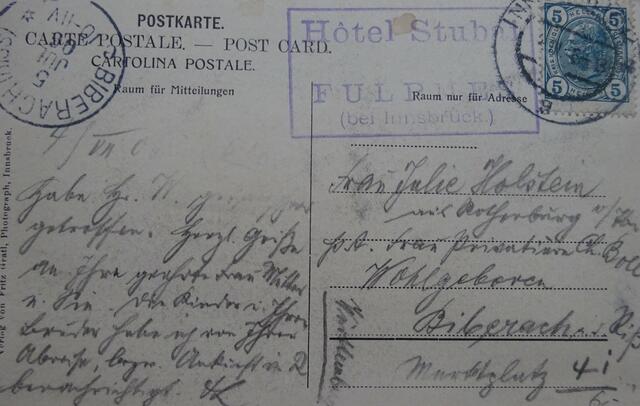 POSTKARTE.
CARTE POSTALE. — POST CARD.
CARTOLINA POSTALE.
Raum für Mitteilungen
Raum nur für Adresse
Hôtel Stubai
FULPMES
(bei Innsbruck.)
BIBERACH (RISS)
5 JUL
5 5
5 5
Verlag von Fritz Gratl, Photograph, Innsbruck.
4/VII 0
Habe Hr.
getroffen. Herzl. Grüße
an Ihre geehrte Frau Mutter
u. Sie. Die Kinder u. Ihren
Bruder habe ich von Ihrer
Abreise, bezw. Ankunft in B
benachrichtigt.
Frau Julie Holstein
aus Rothenburg
p. A. Frau Privatiere
Wohlgeboren
Biberach a. Riß
Marktplatz 41
Württemb